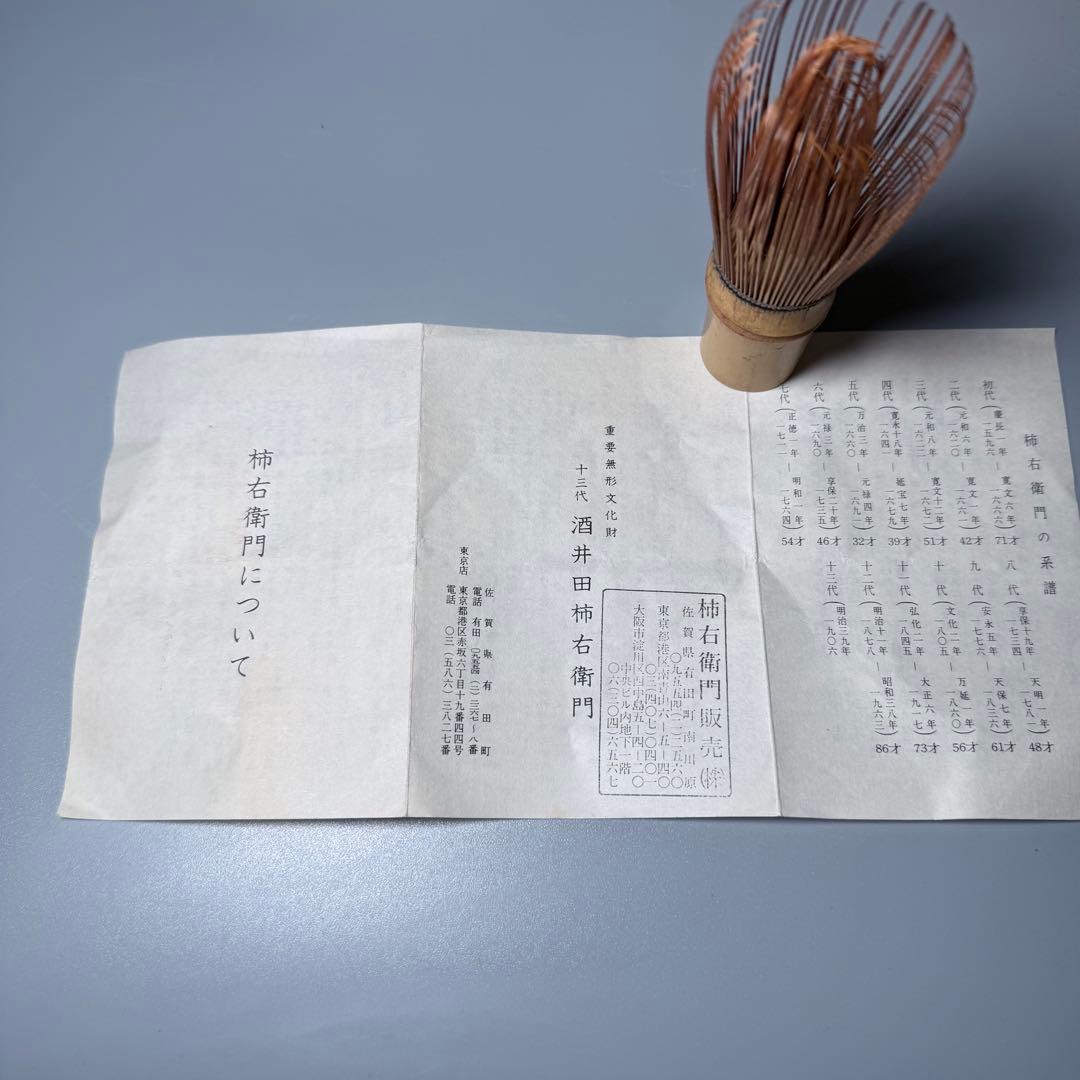 柿右衛門の系譜
初代(慶長一年一五九六―寛文六年一六六六)71才
二代(元和六年一六二〇―寛文一年一六六一)42才
三代(元和八年一六二二―寛文十二年一六七二)51才
四代(寛永十八年一六四一―延宝七年一六七九)39才
五代(万治三年一六六〇―元禄四年一六九一)32才
六代(元禄三年一六九〇―享保二十年一七三五)46才
七代(正徳一年一七一一―明和一年一七六四)54才
八代(享保十九年一七三四―天明一年一七八一)48才
九代(安永五年一七七六―天保七年一八三六)61才
十代(文化二年一八〇五―万延一年一八六〇)56才
十一代(弘化二年一八四五―大正六年一九一七)73才
十二代(明治十一年一八七八―昭和三八年一九六三)86才
十三代(明治三九年一九〇六
重要無形文化財
十三代 酒井田柿右衛門
佐賀県有田町
電話 有田
東京店 東京都港区赤坂六丁目十九番四四号
電話 〇三(五八六)三八二七番
柿右衛門販売(株)
佐賀県有田町南川原
東京都港区南青山六―五―四〇
〇三(四〇七)〇四〇一
大阪市淀川区西中島五―四―二〇
中央ビル内地下一階
〇六(三〇四)六五六七
柿右衛門について